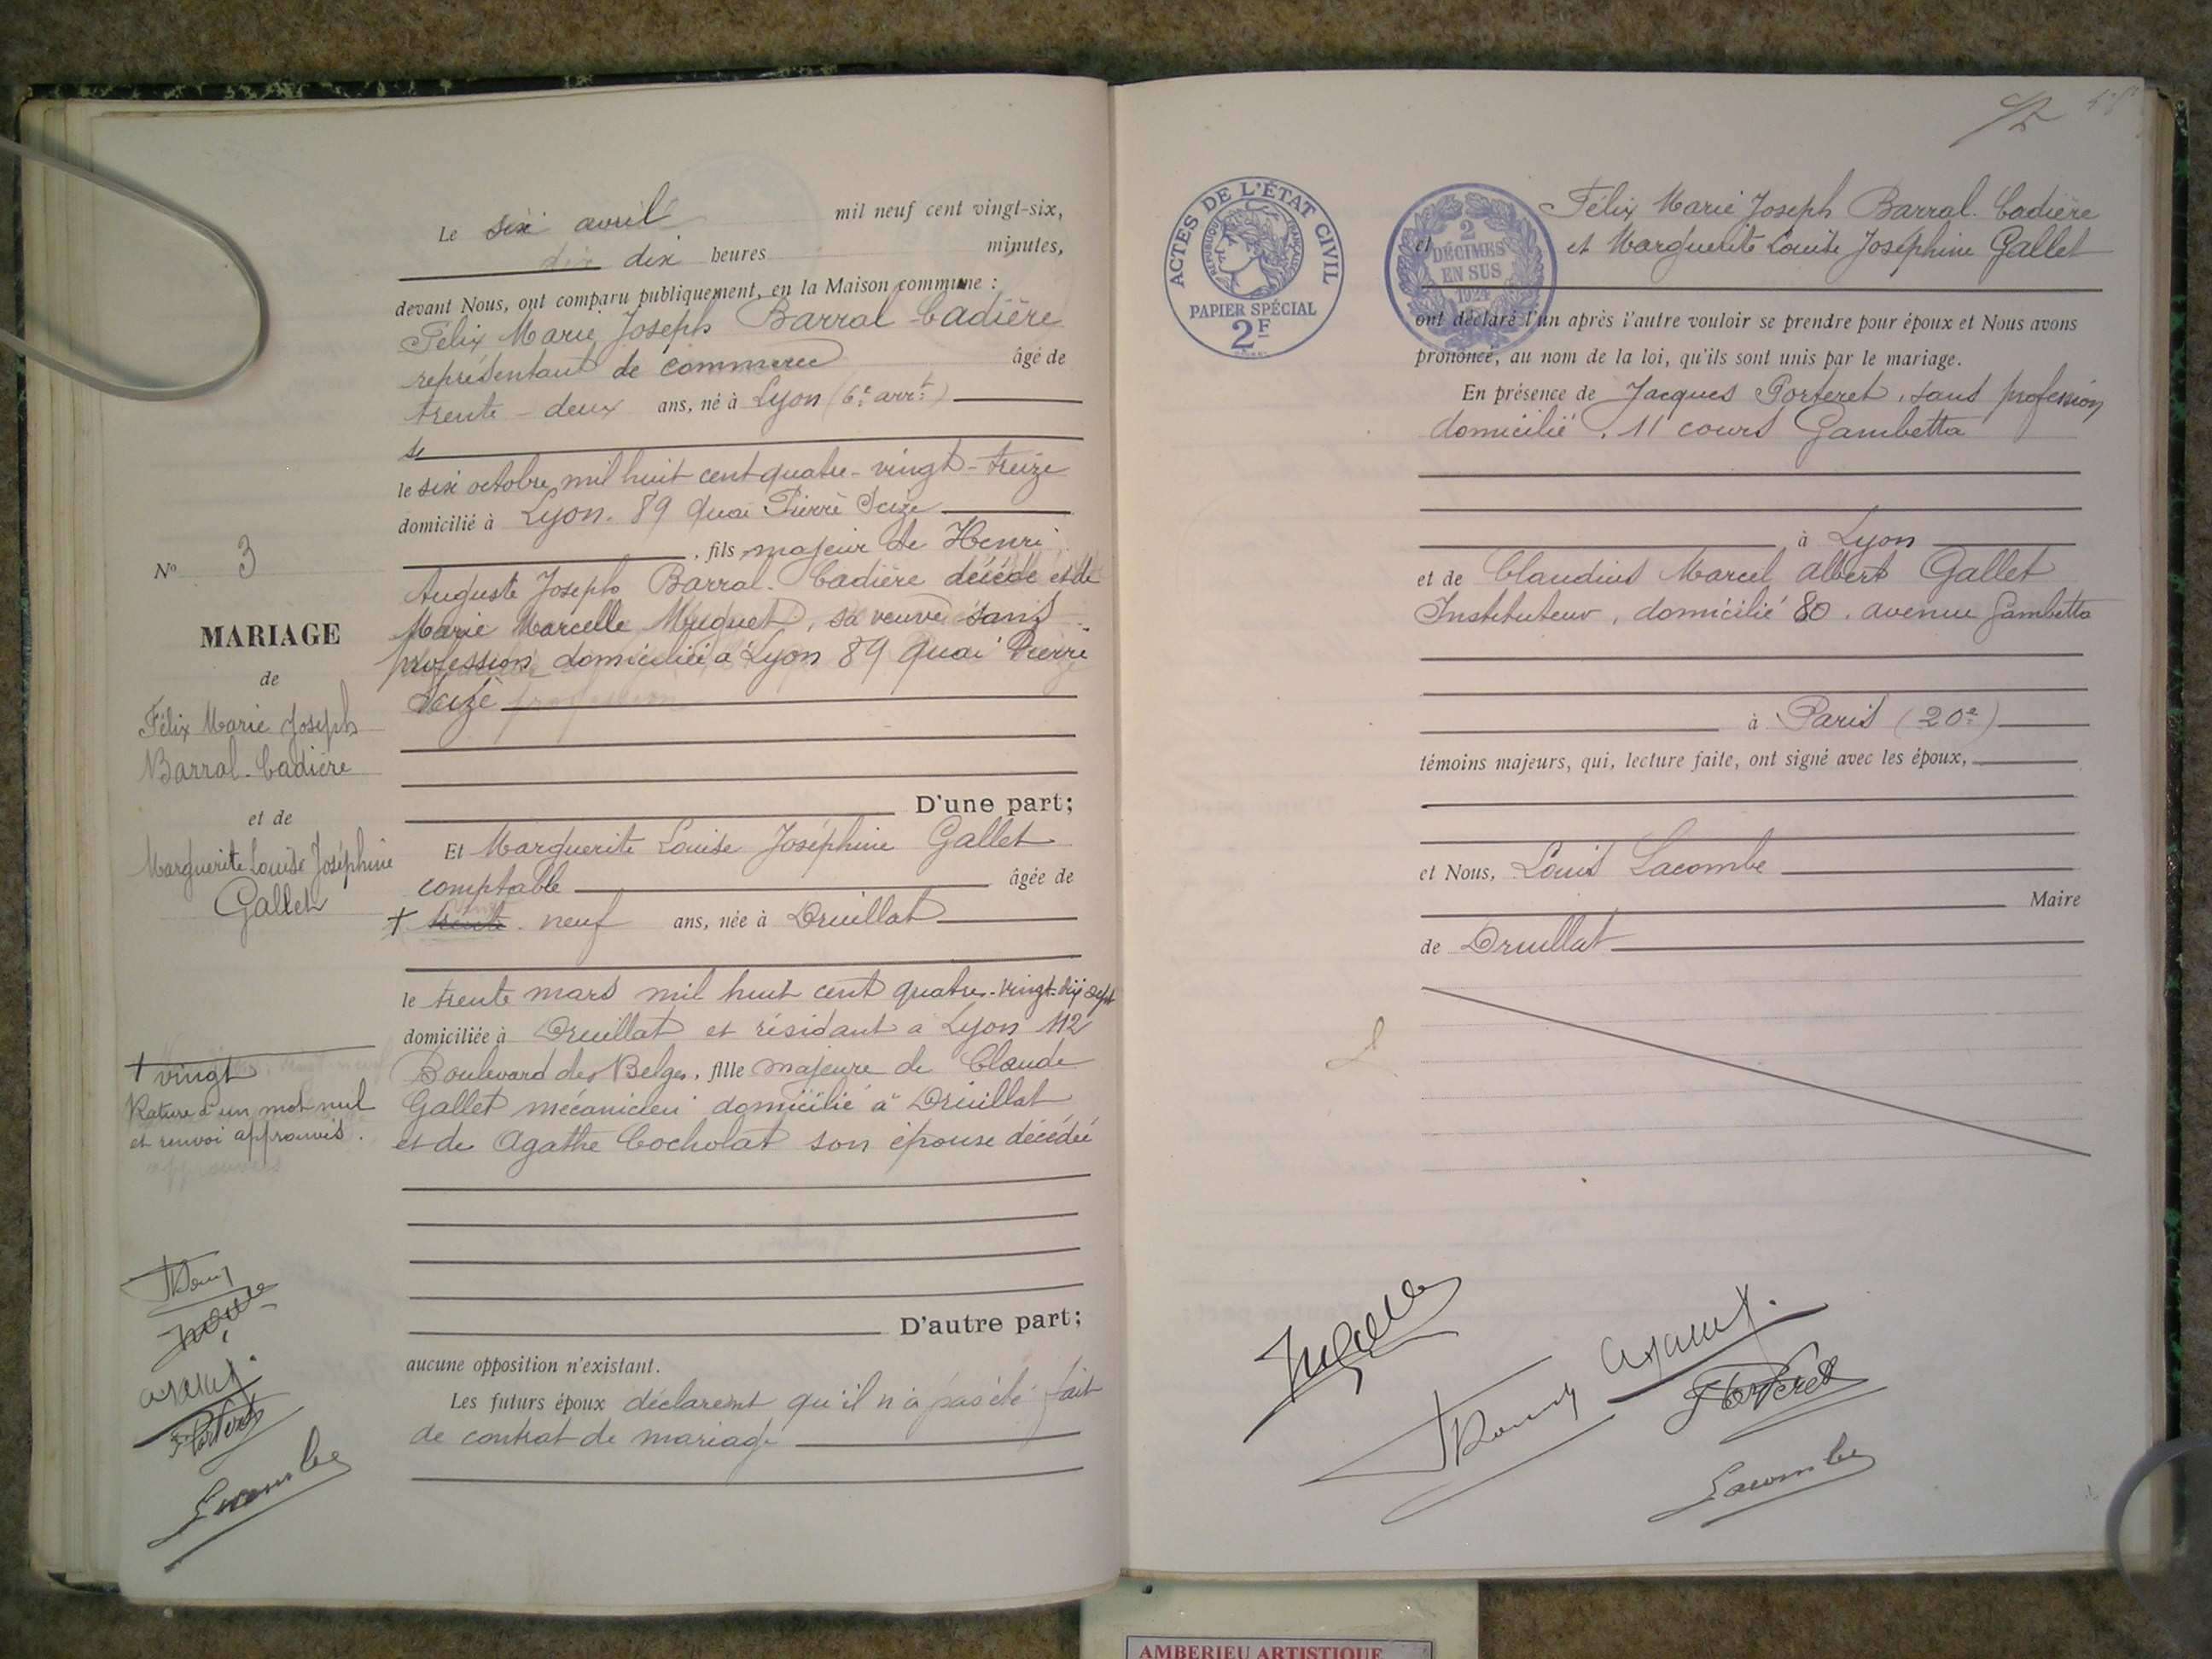 Le six avril mil neuf cent vingt-six,
dix heures minutes,
devant Nous, ont comparu publiquement, en la Maison commune :
Félix Marie Joseph Barral-Cadière
représentant de commerce âgé de
trente-deux ans, né à Lyon (6e arrt)
le six octobre mil huit cent quatre-vingt-treize
domicilié à Lyon. 89 Quai Pierre Scize
, fils majeur de Henri
Auguste Joseph Barral-Cadière décédé et de
Marie Marcelle Muguet, sa veuve sans
profession domiciliée à Lyon 89 Quai Pierre
Scize
No 3
MARIAGE
de
Félix Marie Joseph
Barral-Cadière
et de
Marguerite Louise Joséphine
Gallet
D'une part;
Et Marguerite Louise Joséphine Gallet
comptable âgée de
+ trente. neuf ans, née à Druillat
le trente mars mil huit cent quatre-vingt-dix sept
domiciliée à Druillat et résidant à Lyon 112
Boulevard des Belges, fille majeure de Claude
Gallet mécanicien domicilié à Druillat
et de Agathe Cocholat son épouse décédée
+ vingt
Rature d'un mot nul
et renvoi approuvés.
D'autre part;
aucune opposition n'existant.
Les futurs époux déclarent qu'il n'a pas été fait
de contrat de mariage
Porteret
Lacombe
ACTES DE L'ÉTAT CIVIL
RÉPUBLIQUE FRANÇAISE
PAPIER SPÉCIAL
2F
2
DÉCIMES
EN SUS
1924
Félix Marie Joseph Barral-Cadière
et
et Marguerite Louise Joséphine Gallet
ont déclaré l'un après l'autre vouloir se prendre pour époux et Nous avons
prononcé, au nom de la loi, qu'ils sont unis par le mariage.
En présence de Jacques Porteret, sans profession
domicilié, 11 cours Gambetta
à Lyon
et de Claudius Marcel Albert Gallet
Instituteur, domicilié 80. avenue Gambetta
à Paris (20e)
témoins majeurs, qui, lecture faite, ont signé avec les époux,
et Nous, Louis Lacombe
Maire
de Druillat
Porteret
Lacombe
AMBERIEU ARTISTIQUE